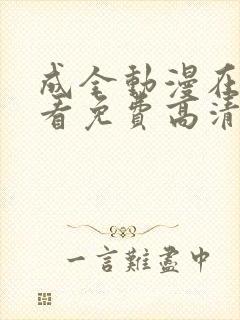 成全動漫在
看免費高清
一言難盡中